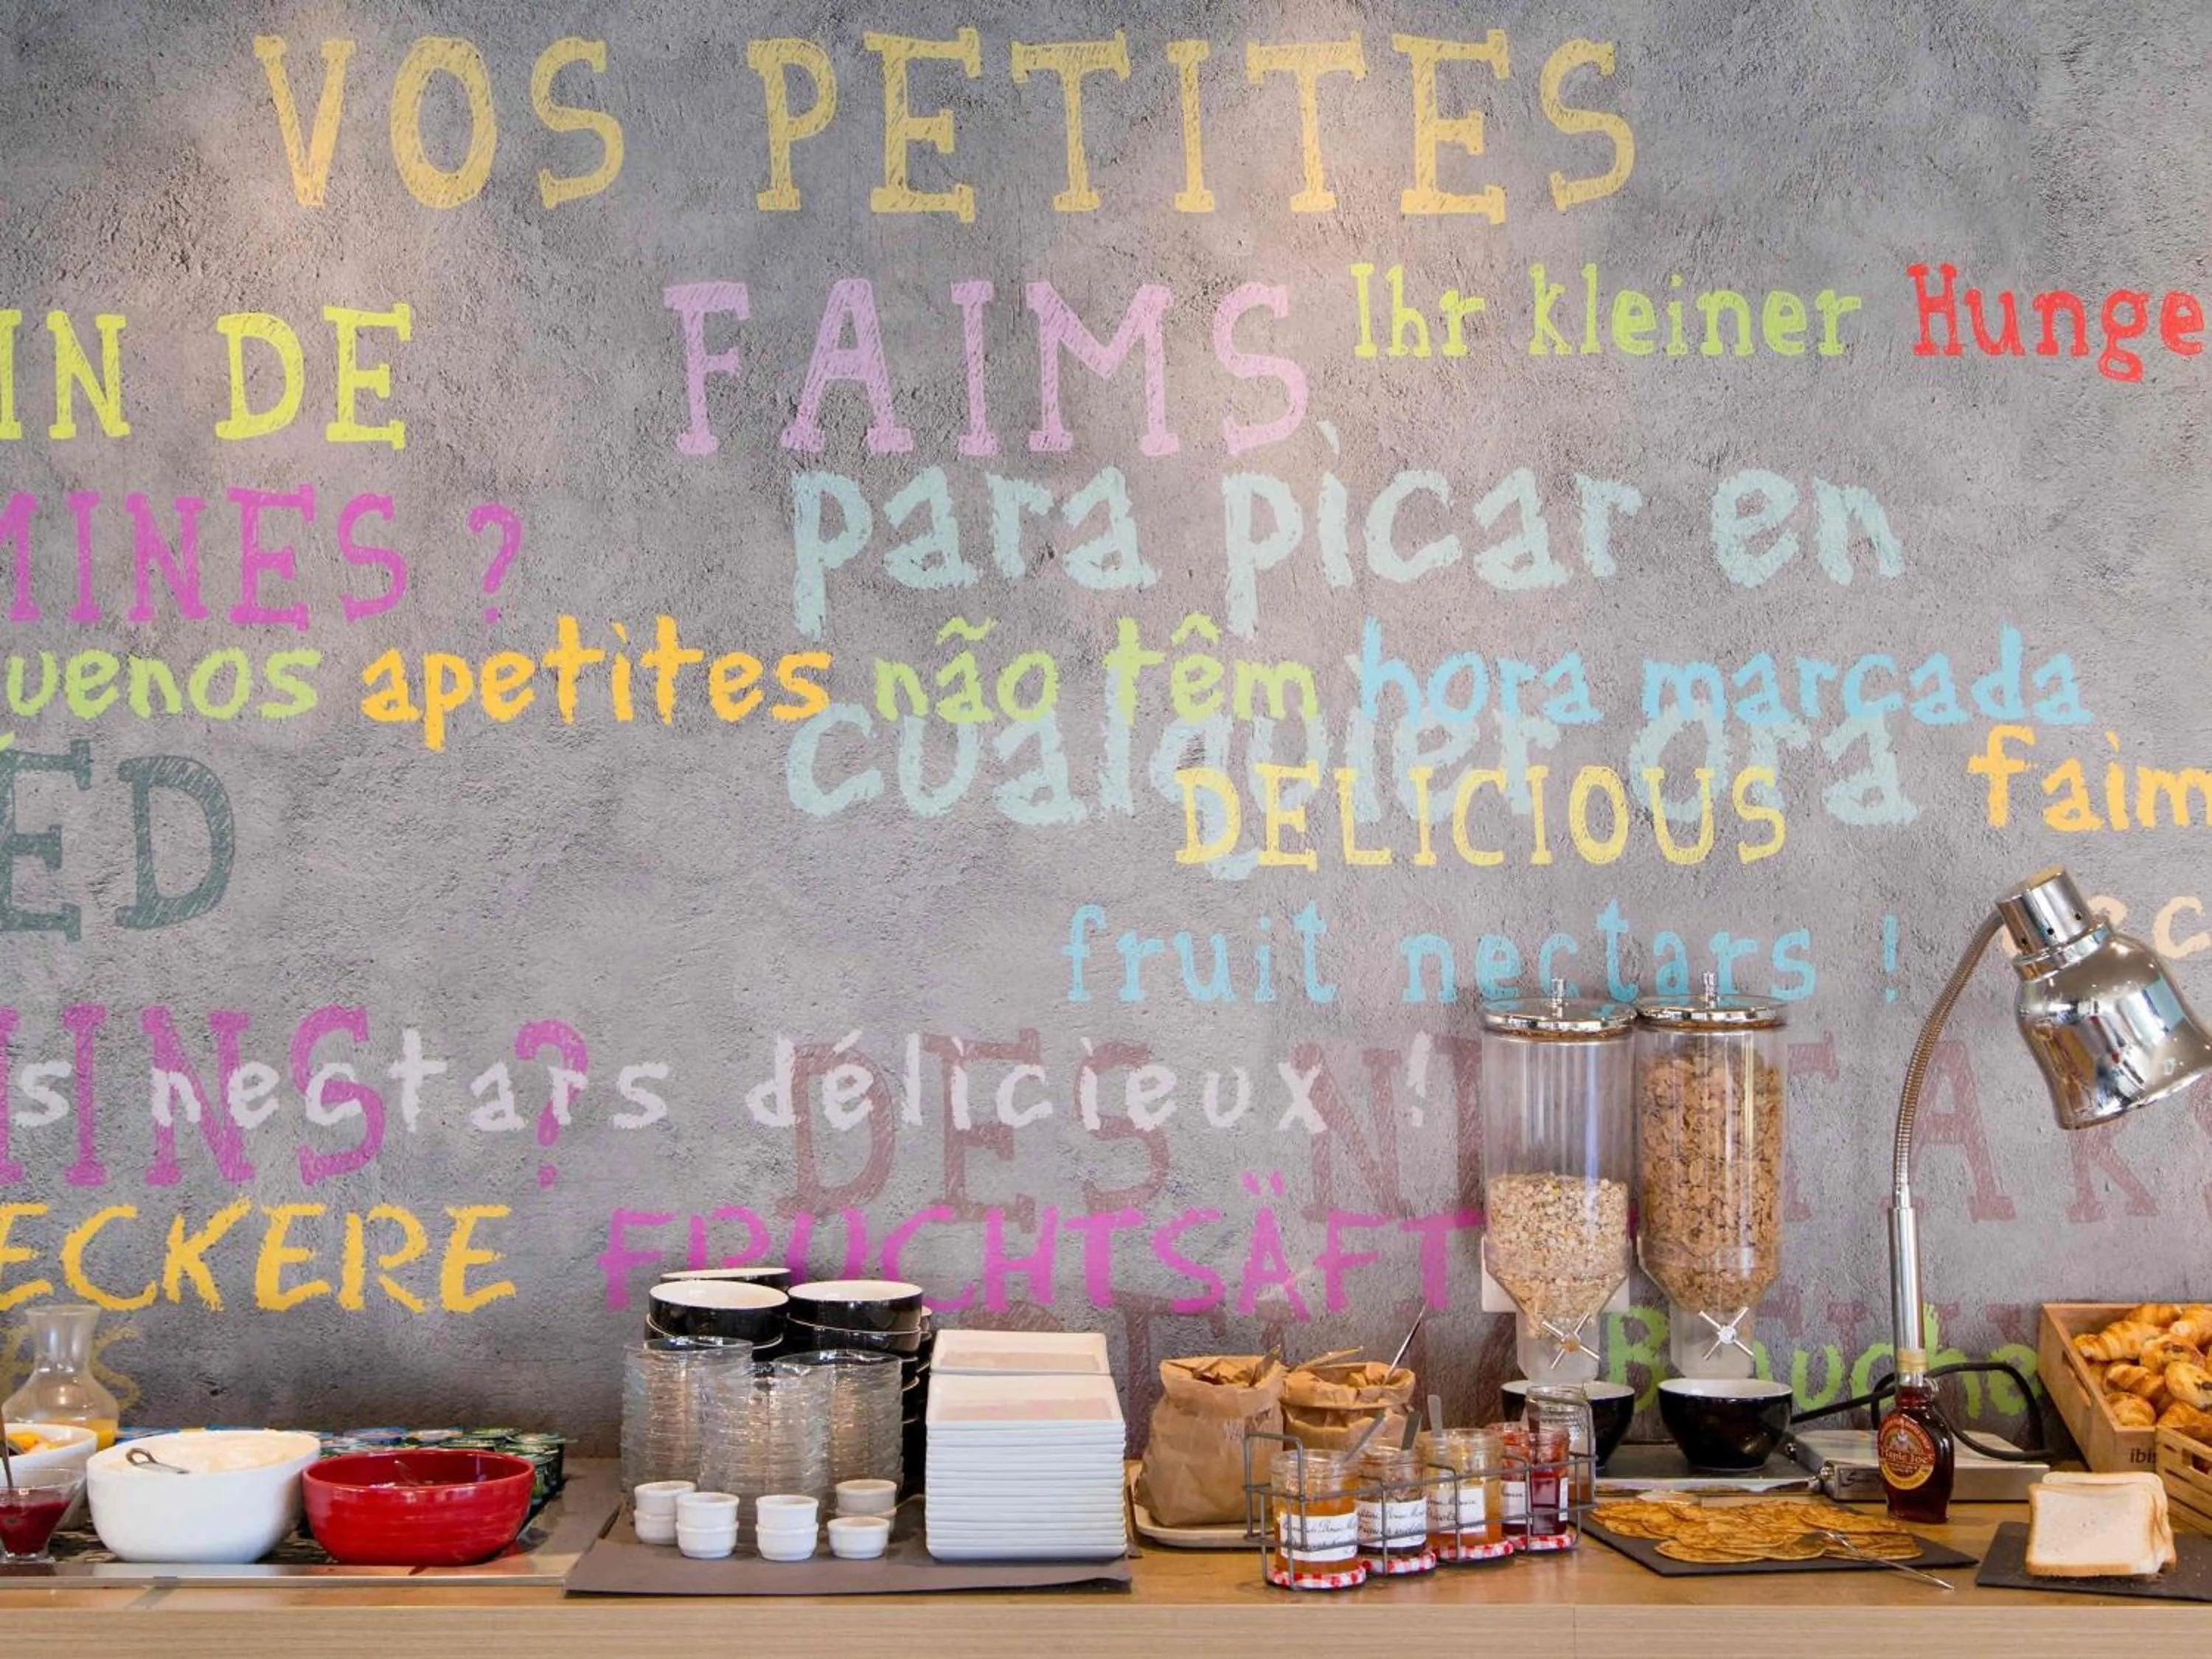 VOS PETITES
IN DE
FAIMS
Ihr kleiner Hunge
MINES ?
para picar en
uenos apetites não têm hora marcada
cualquier ora
ED
DELICIOUS
faim
fruit nectars !
INS ?
s nectars délicieux !
DES
ECKERE FRUCHTSÄFT
ibis